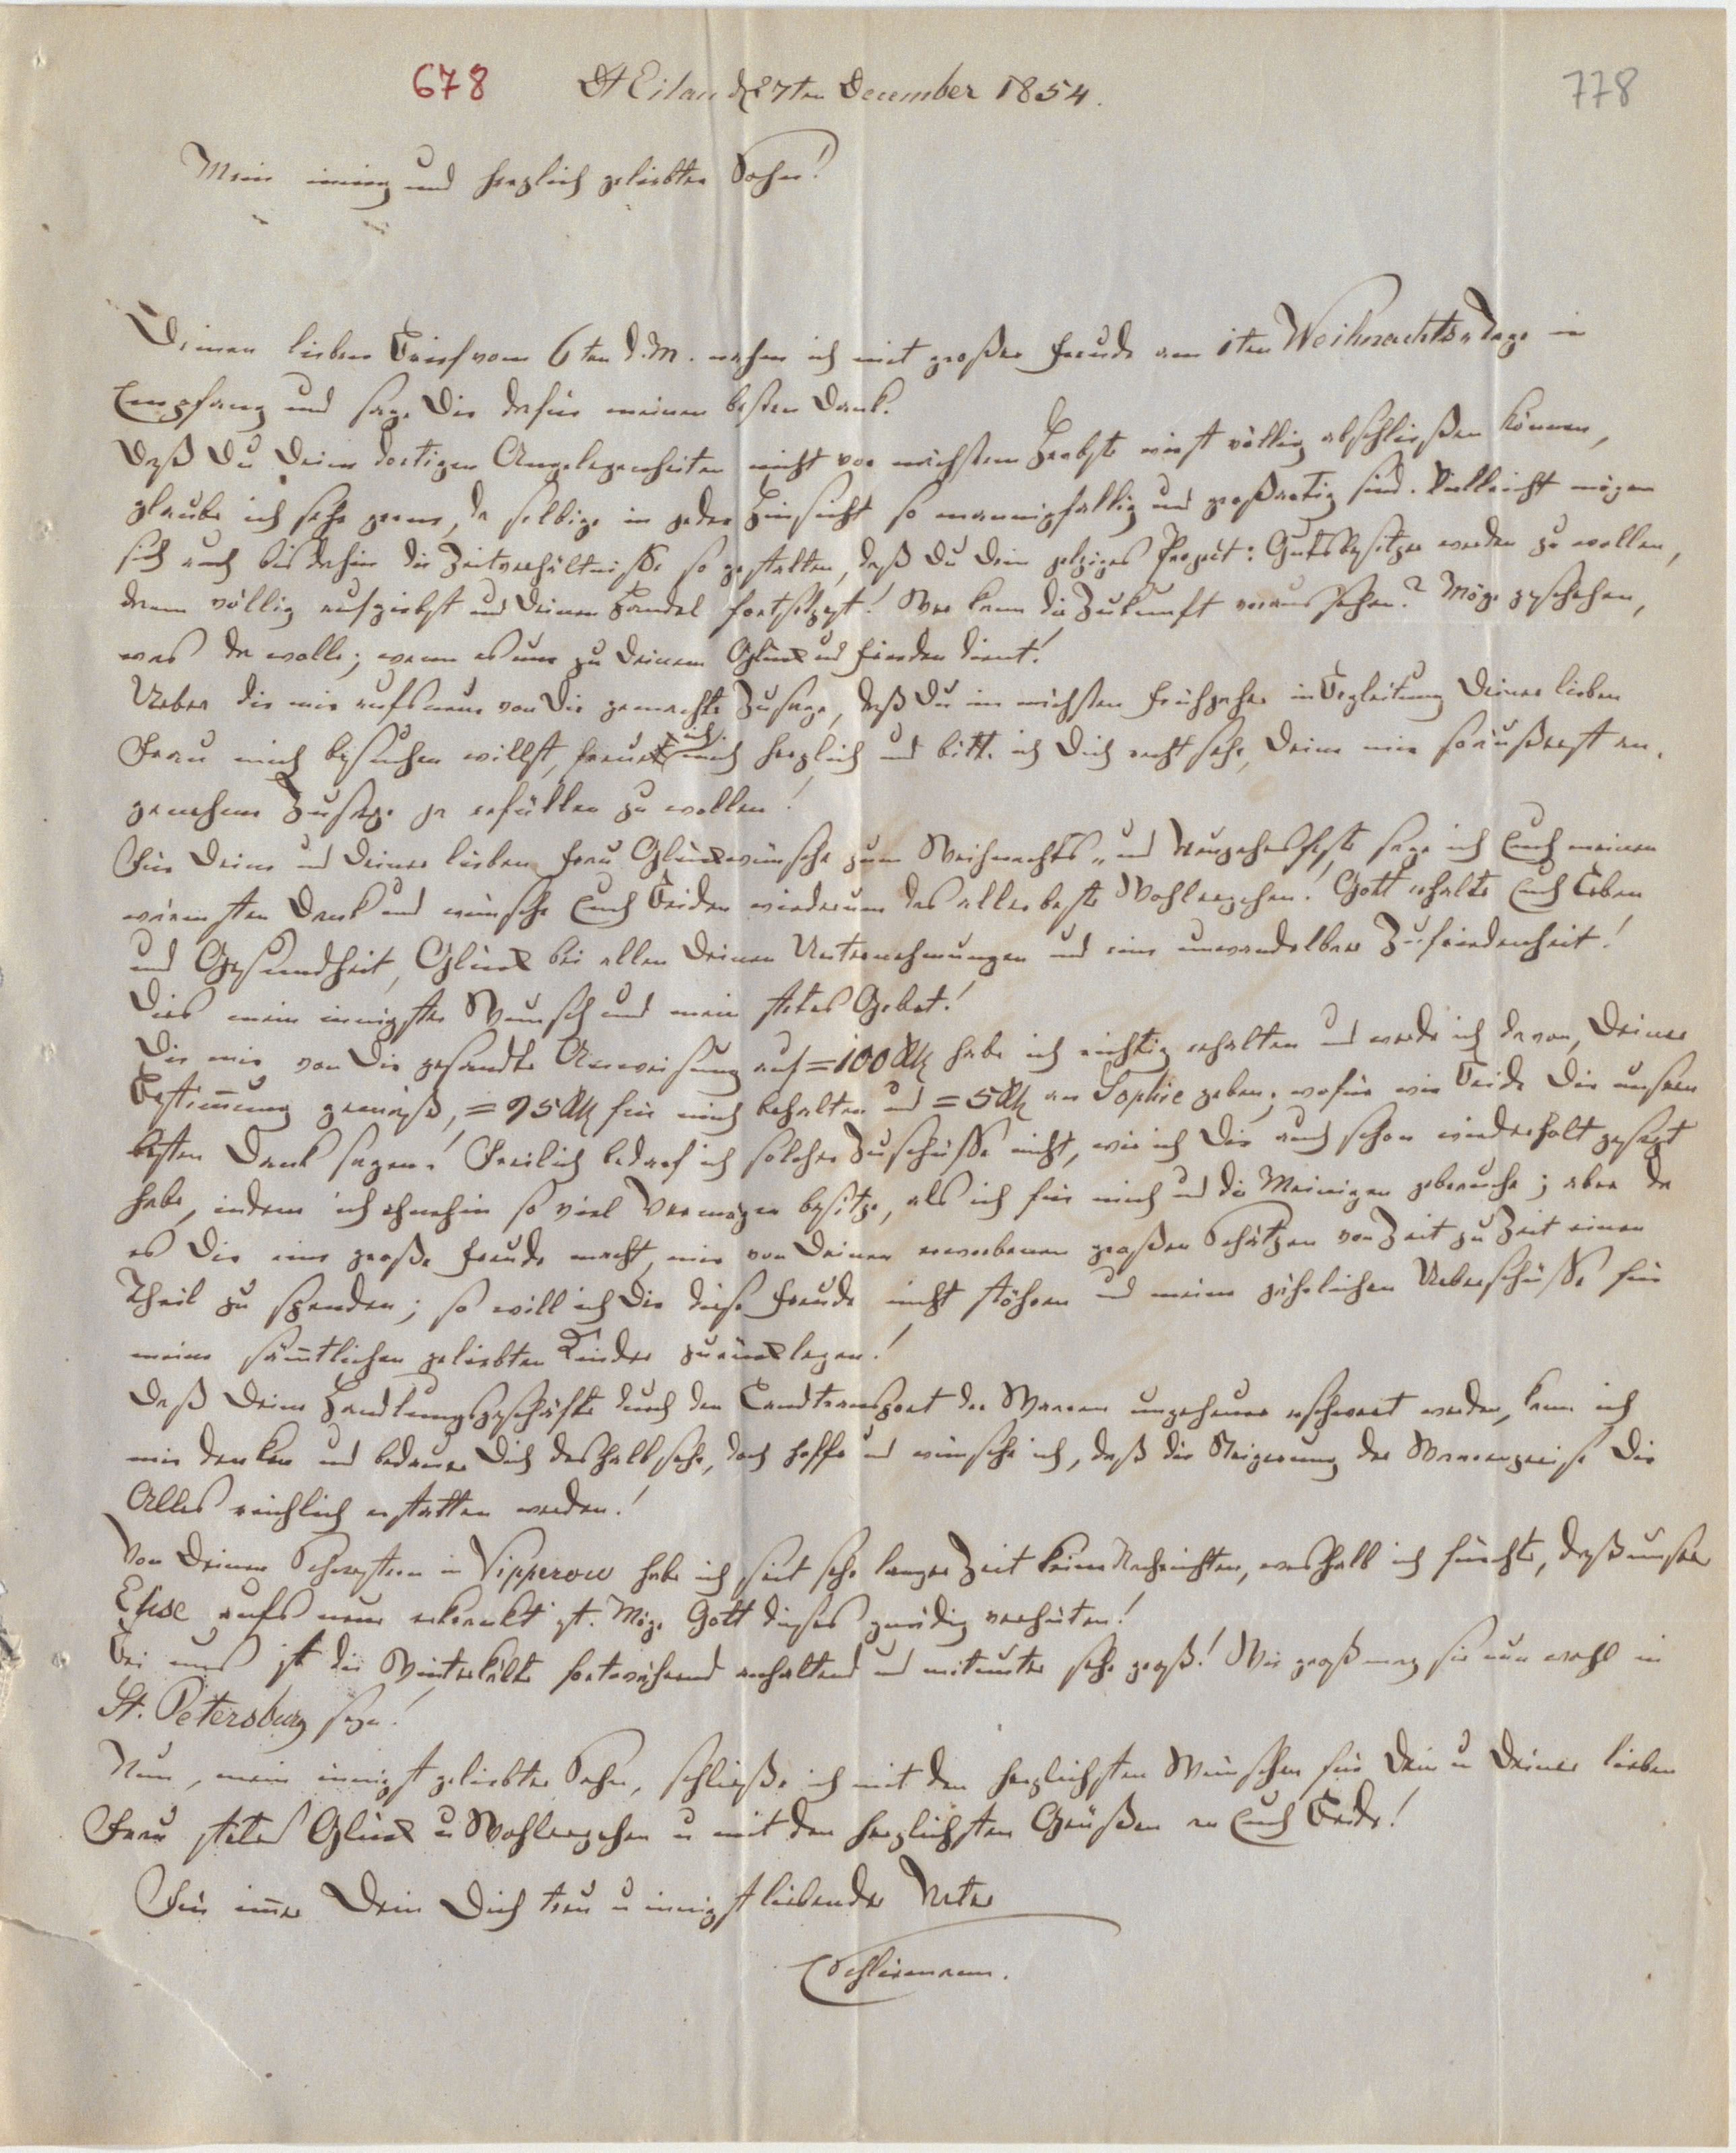 678 Dt Eilau d 27ten December 1854. 778
Mein innig und herzlich geliebter Sohn!
Deinen lieben Brief vom 6ten d. M. nahm ich mit großer Freude am 1ten Weihnachts-Tage in
Empfang und sage Dir dafür meinen besten Dank.
Daß Du Deine dortigen Angelegenheiten nicht vor nächstem Herbste wirst völlig abschließen können,
glaube ich sehr gerne, da selbige in jeder Hinsicht so mannigfaltig und großartig sind. Vielleicht mögen
sich auch bis dahin die Zeitverhältnisse so gestalten, daß Du Dein jetziges Project: Gutsbesitzer werden zu wollen,
dann völlig aufgiebst und Deinen Handel fortsetzest! Wer kann die Zukunft voraus sehen? Möge geschehen,
was da wolle; wenn es nur zu Deinem Glück und Frieden dient!
Ueber die mir aufs neue von Dir gemachte Zusage, daß Du im nächsten Frühjahr in Begleitung Deiner lieben
Frau mich besuchen willst, freue ich mich herzlich und bitte ich Dich recht sehr, Deine mir so äußerst an-
genehme Zusage ja erfüllen zu wollen!
Für Deine und Deiner lieben Frau Glückwünsche zum Weihnachts- und Neujahrsfeste sage ich Euch meinen
wärmsten Dank und wünsche Euch Beiden wiederum das allerbeste Wohlergehen! Gott erhalte Euch Leben
und Gesundheit, Glück bei allen Deinen Unternehmungen und eine unwandelbare Zufriedenheit!
Dies mein innigster Wunsch und mein stetes Gebet!
Die mir von Dir gesandte Anweisung auf =100 Rtl habe ich richtig erhalten und werde ich davon, Deiner
Bestim̄ung gemäß, =95 Rtl für mich behalten und =5 Rtl an Sophie geben; wofür wir Beide Dir unsern
besten Dank sagen! Freilich bedarf ich solcher Zuschüsse nicht, wie ich Dir auch schon wiederholt gesagt
habe, indem ich ohnehin so viel Vermögen besitze, als ich für mich und die Meinigen gebrauche; aber da
es Dir eine große Freude macht, mir von Deinen erworbenen großen Schätzen von Zeit zu Zeit einen
Theil zu spenden; so will ich Dir diese Freude nicht stöhren und meine jährlichen Ueberschüsse für
meine säm̄tlichen geliebten Kinder zurücklegen!
Daß Deine Handlungsgeschäfte durch den Landtransport der Waaren ungeheuer erschwert werden, kann ich
mir denken und bedaure Dich deshalb sehr, doch hoffe und wünsche ich, daß die Steigerung der Waarenpreise Dir
Alles reichlich erstatten werden!
Von Deinen Schwestern in Vipperow habe ich seit sehr langer Zeit keine Nachrichten, weshalb ich fürchte, daß unsre
Elise aufs neue erkrankt ist. Möge Gott dieses gnädig verhüten!
Bei uns ist die Winterkälte fortwährend anhaltend und mitunter sehr groß! Wie groß mag sie nun wohl in
St. Petersburg seyn!
Nun, mein innigst geliebter Sohn, schließe ich mit den herzlichsten Wünschen für Dein u Deiner lieben
Frau stetes Glück u Wohlergehen u mit den herzlichsten Grüßen an Euch Beide!
Für im̄er Dein Dich treu u innigst liebender Vater
ESchliemann.